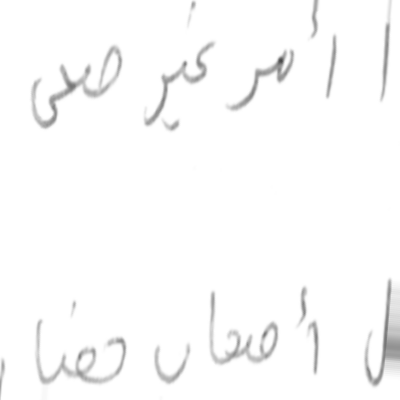 ا أمر غير صحى
ل أصحاب حضا